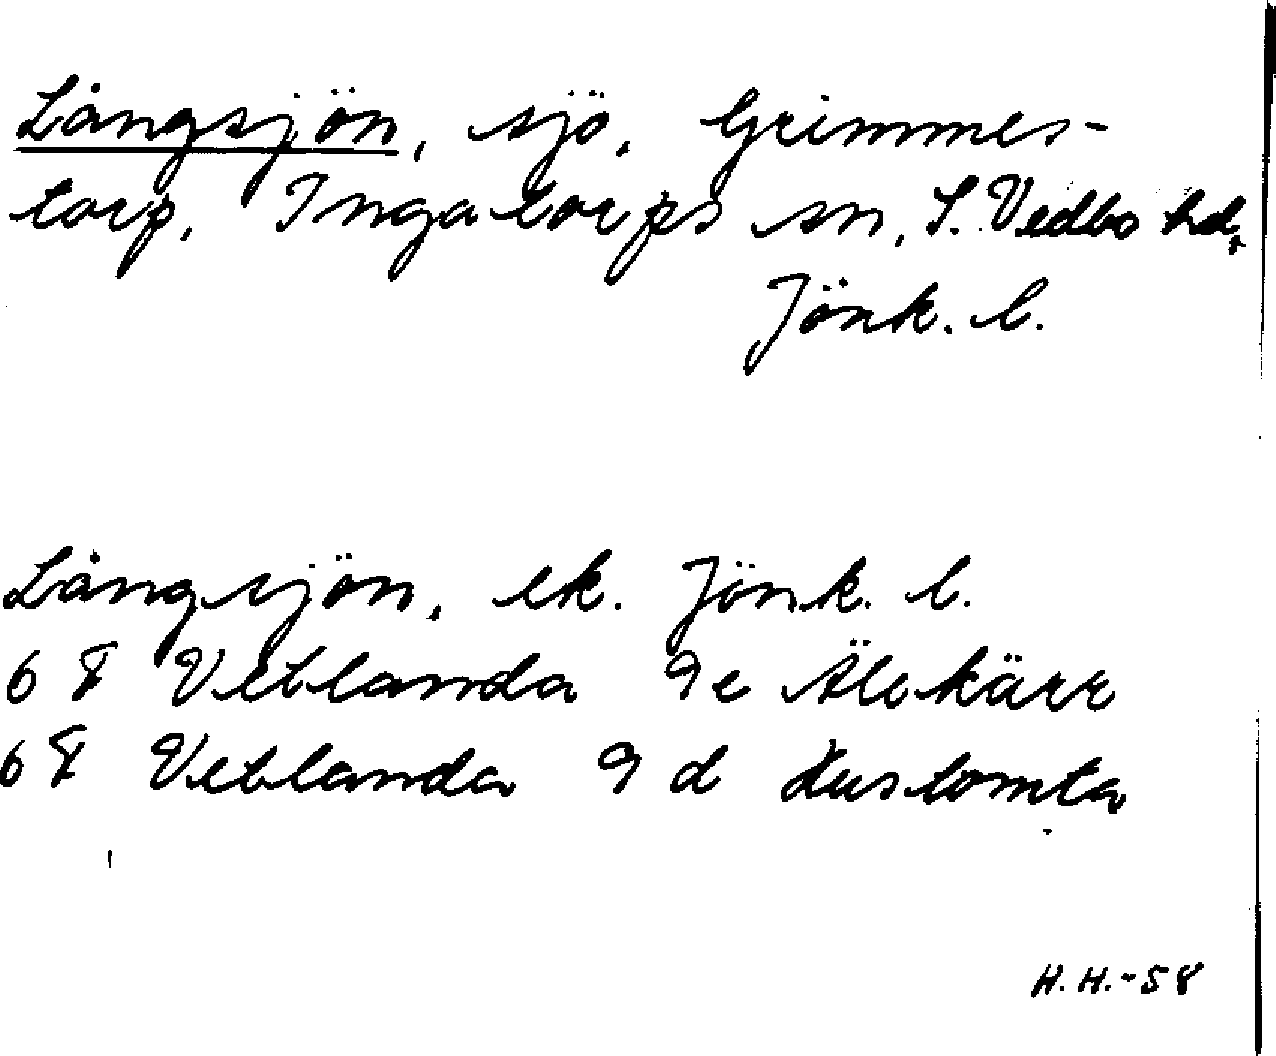 Långsjön, sjö, Grimmes-
torp, Ingatorps sn, S. Vedbo hd,
Jönk. l.
Långsjön, ek. Jönk. l.
6 F Vetlanda 9e Älekärr
6 F Vetlanda 9 d Lustomta
H. H. - 58